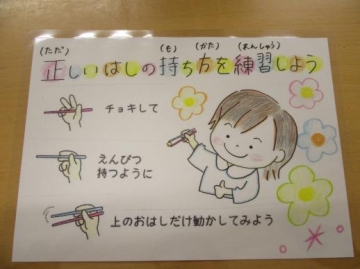 (ただ) (も) (かた) (れんしゅう)
正しいはしの持ち方を練習しよう
チョキして
えんぴつ
持つように
上のおはしだけ動かしてみよう